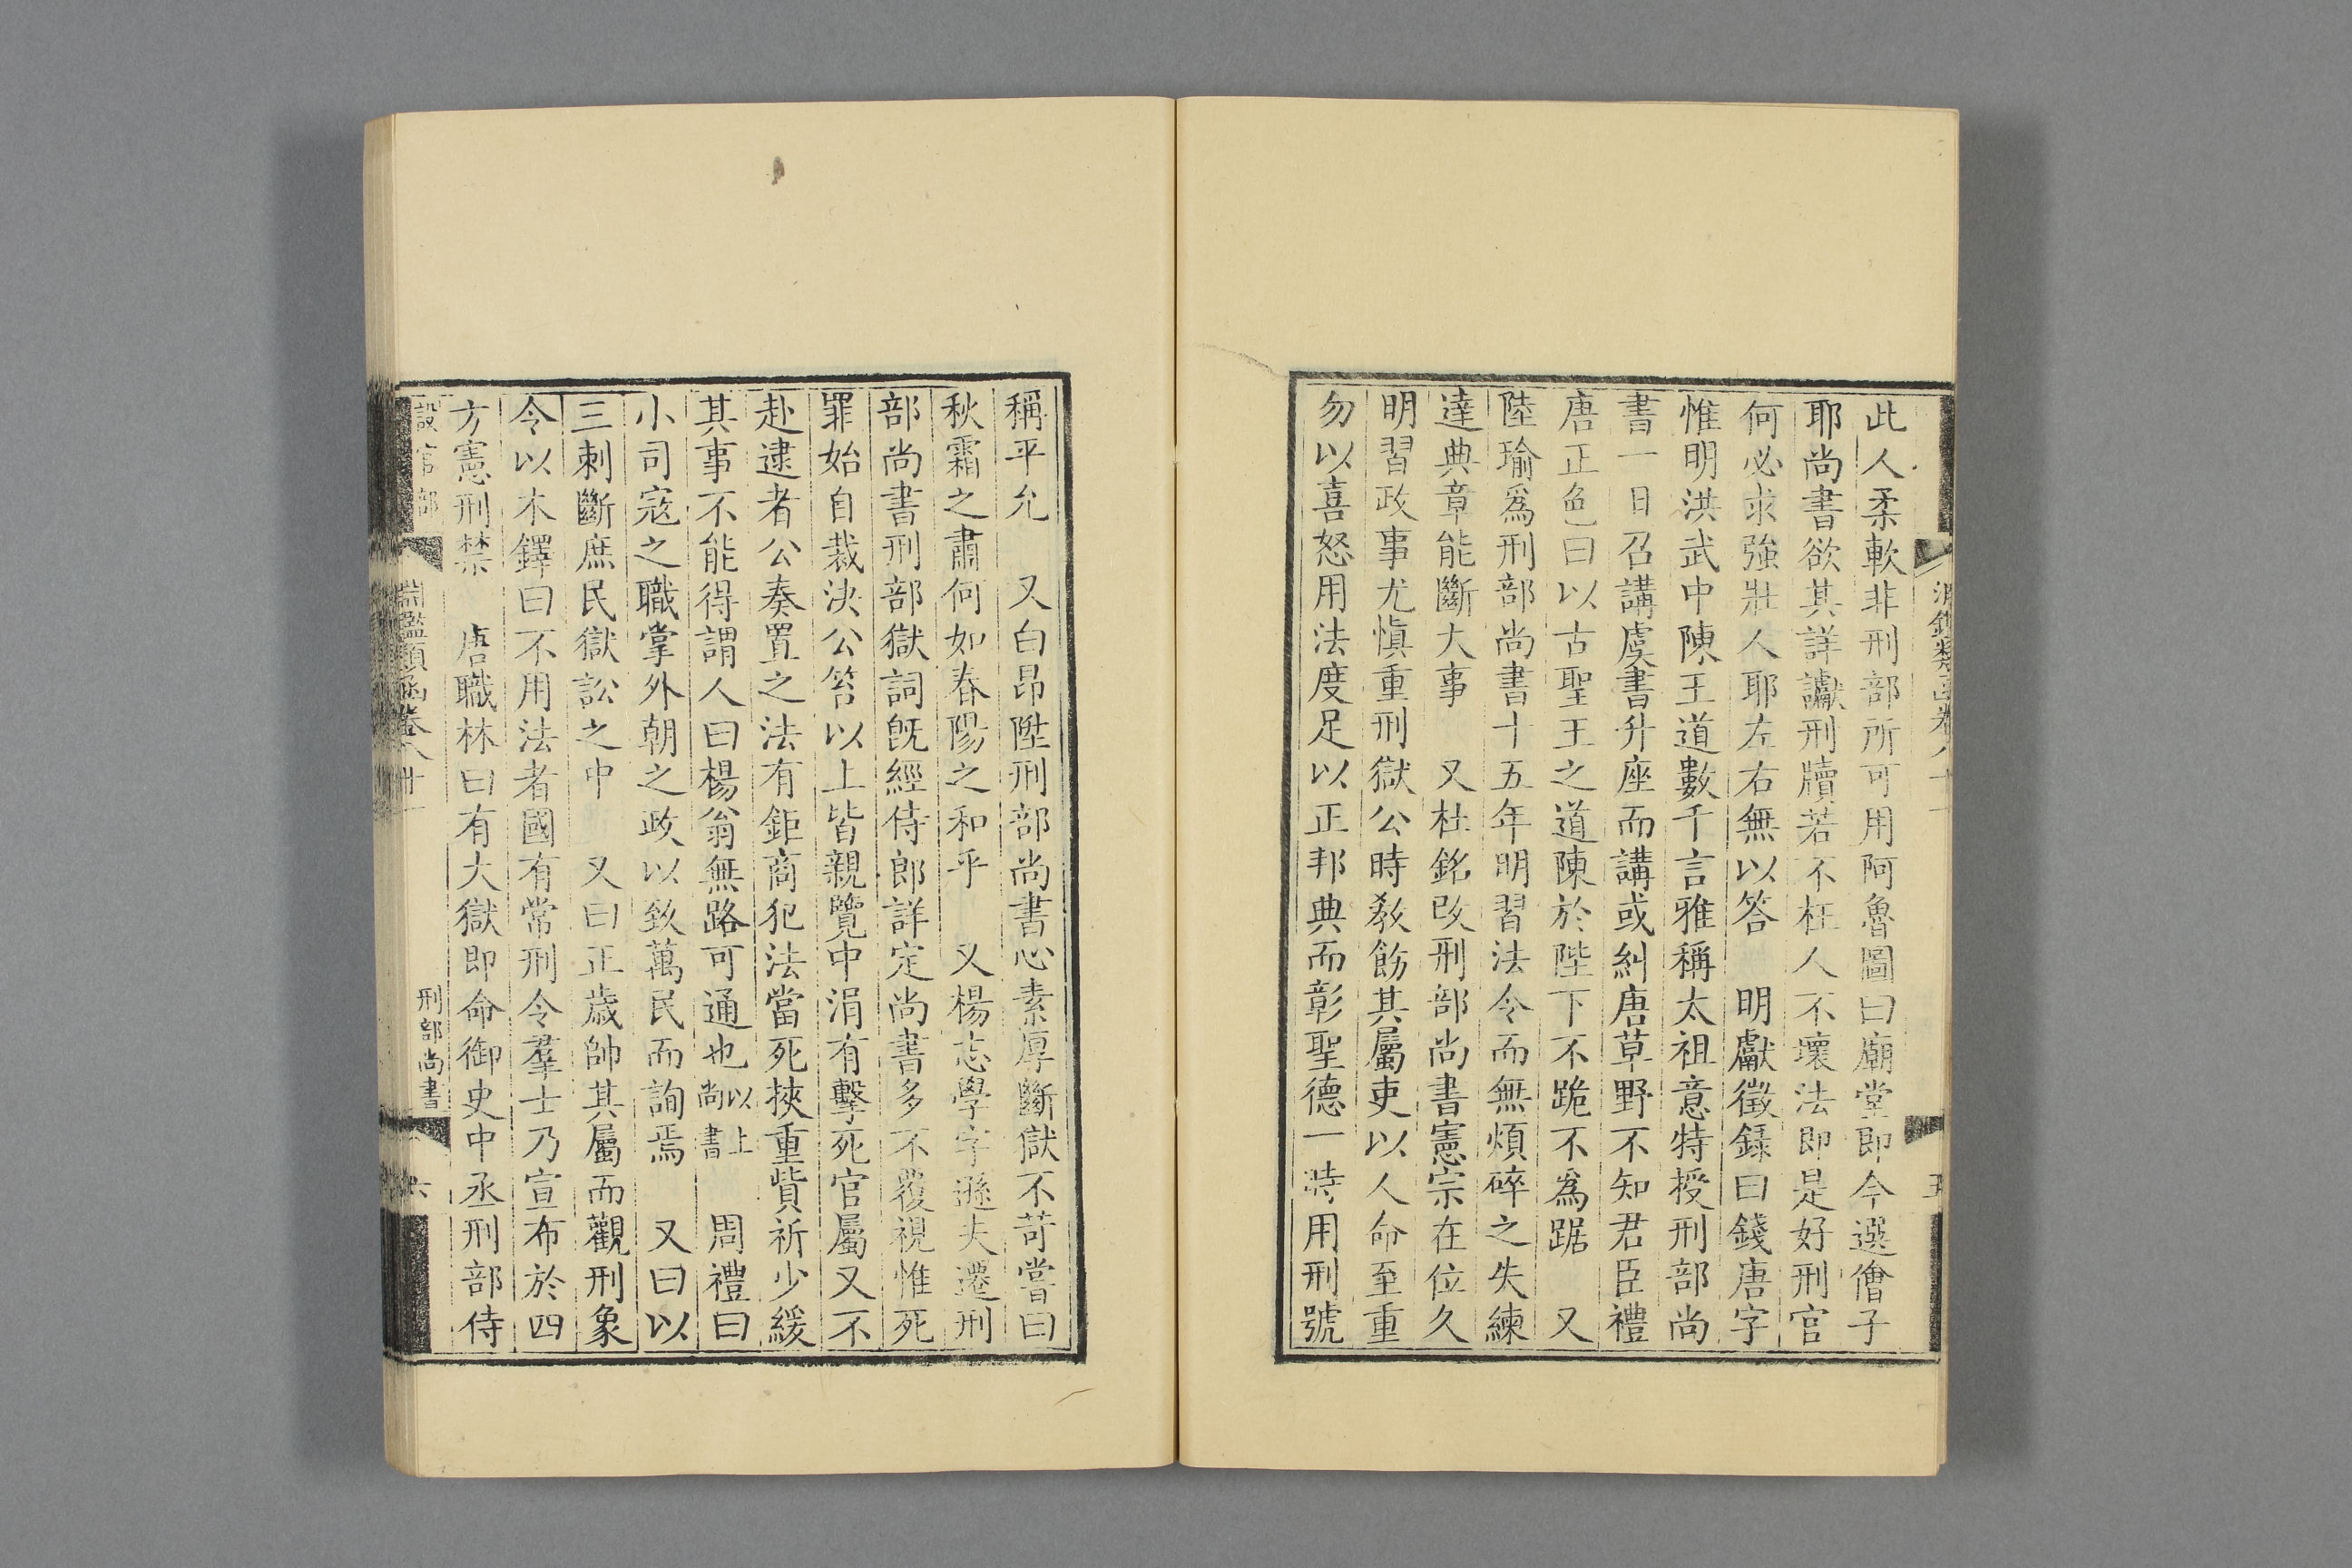 此人柔軟非刑部所可用阿魯圖曰廟堂即今選儈子
耶尚書欲其詳讞刑牘若不枉人不壞法即是好刑官
何必求強壯人耶左右無以答　明獻徵錄曰錢唐字
惟明洪武中陳王道數千言雅稱太祖意特授刑部尚
書一日召講虞書升座而講或糾唐草野不知君臣禮
唐正色曰以古聖王之道陳於陛下不跪不為踞　又
陸瑜為刑部尚書十五年明習法令而無煩碎之失練
達典章能斷大事　又杜銘改刑部尚書憲宗在位久
明習政事尤慎重刑獄公時敎飭其屬吏以人命至重
勿以喜怒用法度足以正邦典而彰聖德一時用刑號
稱平允　又白昂陞刑部尚書心素厚斷獄不苛嘗曰
秋霜之肅何如春陽之和乎　又楊志學字遜夫遷刑
部尚書刑部獄詞旣經侍郎詳定尚書多不覆視惟死
罪始自裁決公笞以上皆親覽中涓有擊死官屬又不
赴逮者公奏置之法有鉅商犯法當死挾重貲祈少緩
其事不能得謂人曰楊翁無路可通也以上尚書　周禮曰
小司寇之職掌外朝之政以致萬民而詢焉　又曰以
三刺斷庶民獄訟之中　又曰正歲帥其屬而觀刑象
令以木鐸曰不用法者國有常刑令羣士乃宣布於四
方憲刑禁　唐職林曰有大獄即命御史中丞刑部侍
設官部　淵鑑類函卷八十一　刑部尚書　六